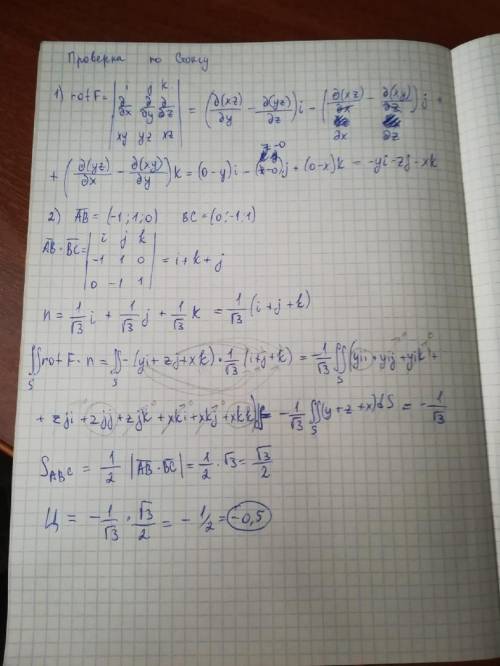 Проверка по Стоксу
1) rotF = | i j k; ∂/∂x ∂/∂y ∂/∂z; xy yz xz | = (∂(xz)/∂y − ∂(yz)/∂z)i − (∂(xz)/∂x − ∂(xy)/∂z)j +
+ (∂(yz)/∂x − ∂(xy)/∂y)k = (0−y)i − (z−0)j + (0−x)k = −yi−zj−xk
2) AB = (−1; 1; 0) BC = (0; −1; 1)
AB · BC = | i j k; −1 1 0; 0 −1 1 | = i + k + j
n = 1/√3 i + 1/√3 j + 1/√3 k = 1/√3 (i + j + k)
∬S rotF · n = ∬S −(yi + zj + xk) · 1/√3 (i + j + k) = −1/√3 ∬S (yii + yij + yik +
+ zji + zjj + zjk + xki + xkj + xkk) = −1/√3 ∬S (y + z + x)dS = −1/√3
SABC = 1/2 |AB · BC| = 1/2 · √3 = √3/2
Ц = −1/√3 · √3/2 = −1/2 = −0,5